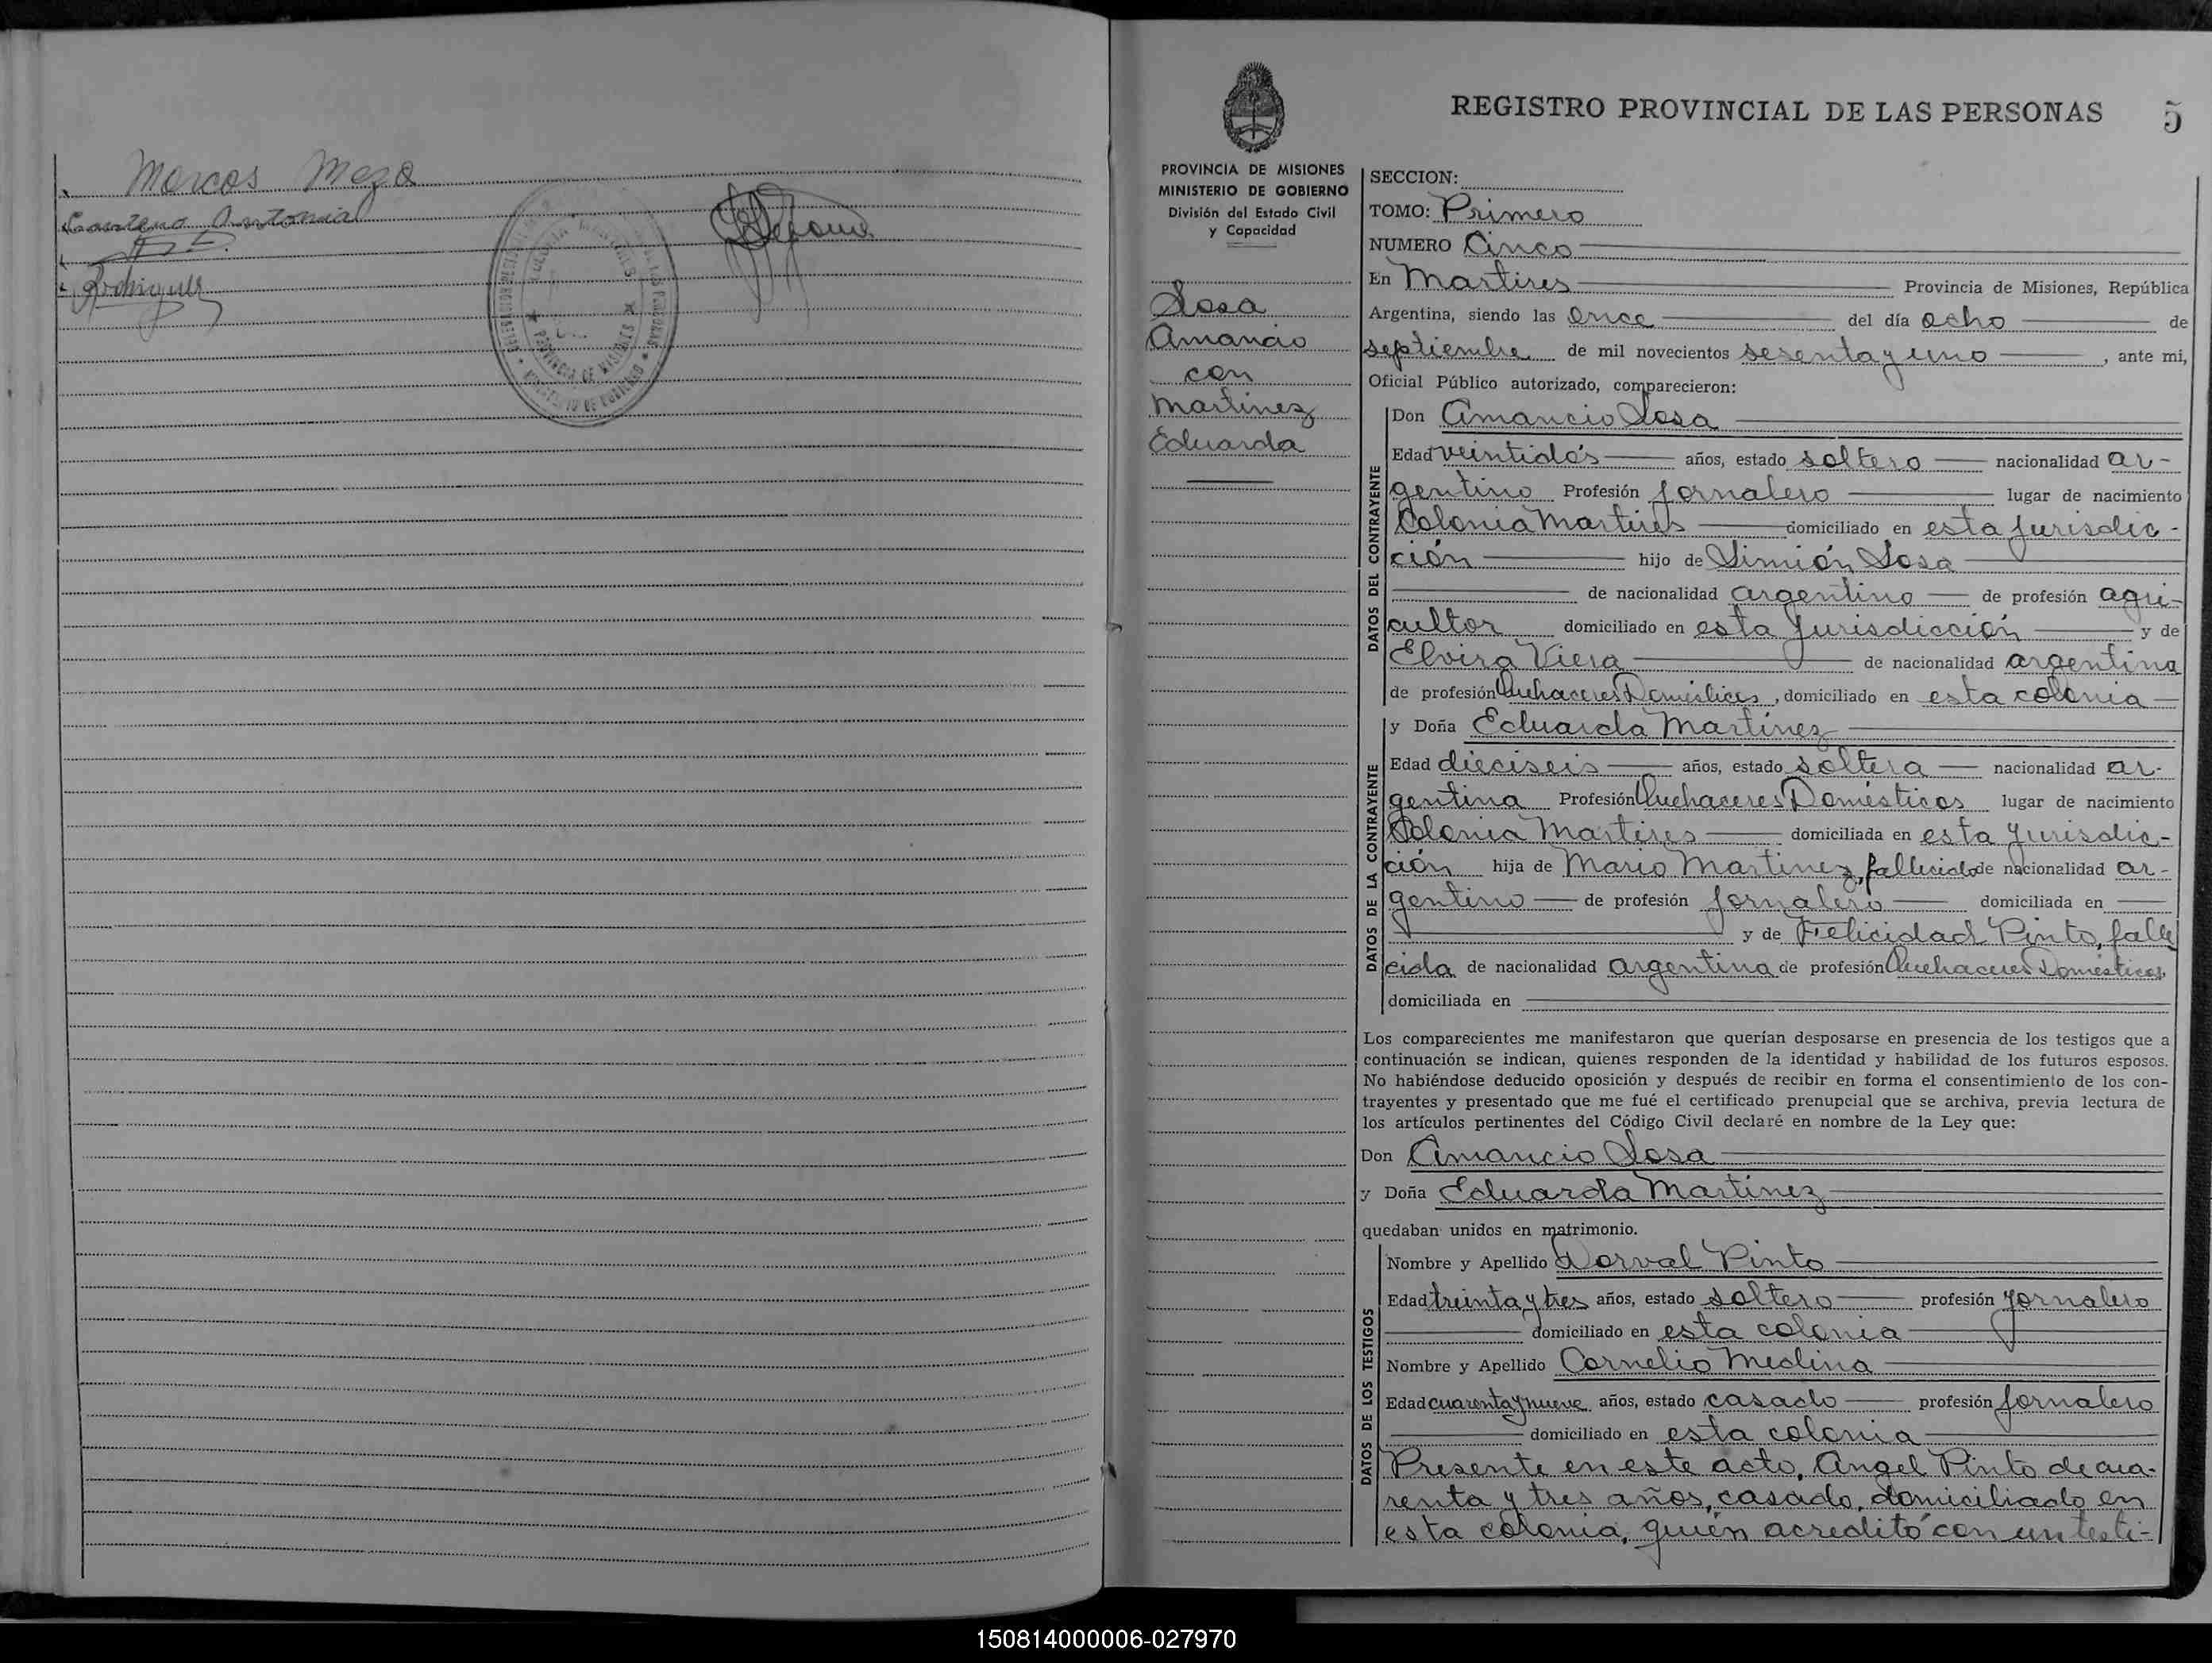 Marcos Meza
Antonia
Rodriguez
PROVINCIA DE MISIONES
MINISTERIO DE GOBIERNO
División del Estado Civil
y Capacidad
Sosa
Amancio
con
Martinez
Eduarda
REGISTRO PROVINCIAL DE LAS PERSONAS 5
SECCION:
TOMO: Primero
NUMERO Cinco
En Martires Provincia de Misiones, República
Argentina, siendo las Once del día Ocho de
septiembre de mil novecientos sesenta y uno, ante mi,
Oficial Público autorizado, comparecieron:
DATOS DEL CONTRAYENTE
Don Amancio Sosa
Edad veintidós años, estado soltero nacionalidad ar-
gentino Profesión Jornalero lugar de nacimiento
Colonia Martires domiciliado en esta Jurisdic-
ción hijo de Simión Sosa
de nacionalidad argentino de profesión agri-
cultor domiciliado en esta Jurisdicción y de
Elvira Viera de nacionalidad argentina
de profesión Quehaceres Domésticos, domiciliado en esta colonia
DATOS DE LA CONTRAYENTE
y Doña Eduarda Martínez
Edad dieciseis años, estado soltera nacionalidad ar-
gentina Profesión Quehaceres Domésticos lugar de nacimiento
Colonia Martires domiciliada en esta Jurisdic-
ción hija de Mario Martinez, fallecido de nacionalidad ar-
gentino de profesión Jornalero domiciliada en
y de Felicidad Pinto, falle
cida de nacionalidad argentina de profesión Quehaceres Domésticos,
domiciliada en
Los comparecientes me manifestaron que querían desposarse en presencia de los testigos que a
continuación se indican, quienes responden de la identidad y habilidad de los futuros esposos.
No habiéndose deducido oposición y después de recibir en forma el consentimiento de los con-
trayentes y presentado que me fué el certificado prenupcial que se archiva, previa lectura de
los artículos pertinentes del Código Civil declaré en nombre de la Ley que:
Don Amancio Sosa
y Doña Eduarda Martínez
quedaban unidos en matrimonio.
DATOS DE LOS TESTIGOS
Nombre y Apellido Dorval Pinto
Edad treinta y tres años, estado soltero profesión Jornalero
domiciliado en esta colonia
Nombre y Apellido Cornelio Medina
Edad cuarenta y nueve años, estado casado profesión Jornalero
domiciliado en esta colonia
Presente en este acto, Angel Pinto de cua-
renta y tres años, casado, domiciliado en
esta colonia, quién acreditó con un testi-
150814000006-027970